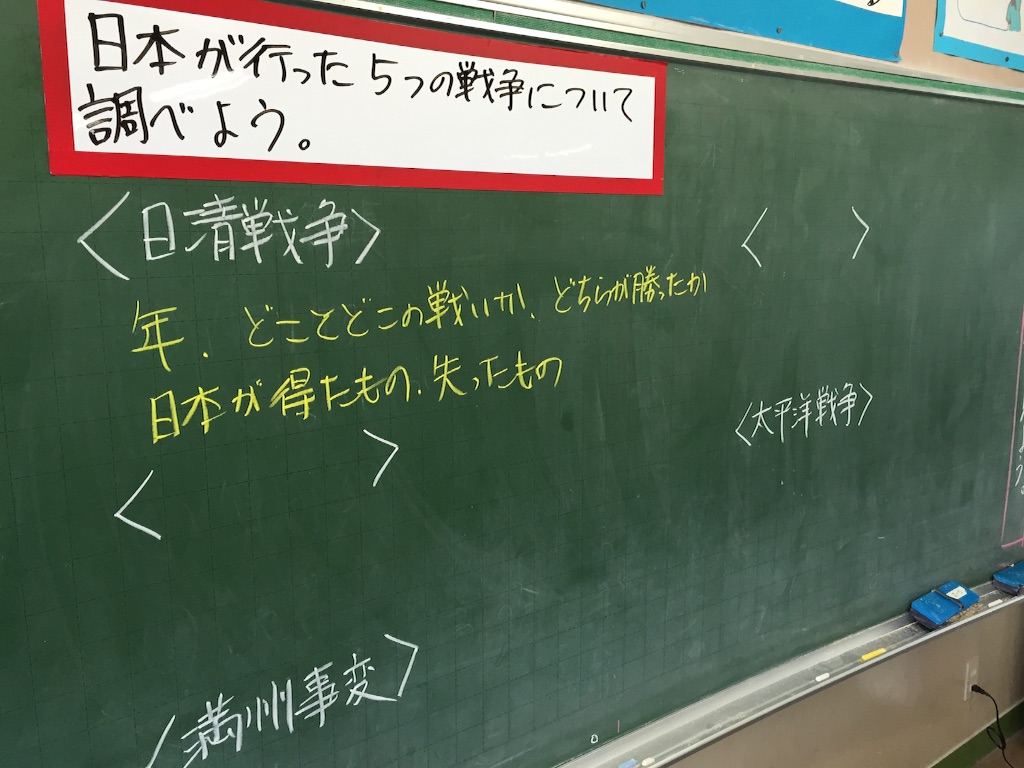 日本が行った5つの戦争について
調べよう。
〈日清戦争〉
年、どことどこの戦いか、どちらが勝ったか
日本が得たもの、失ったもの
〈 〉
〈満州事変〉
〈 〉
〈太平洋戦争〉